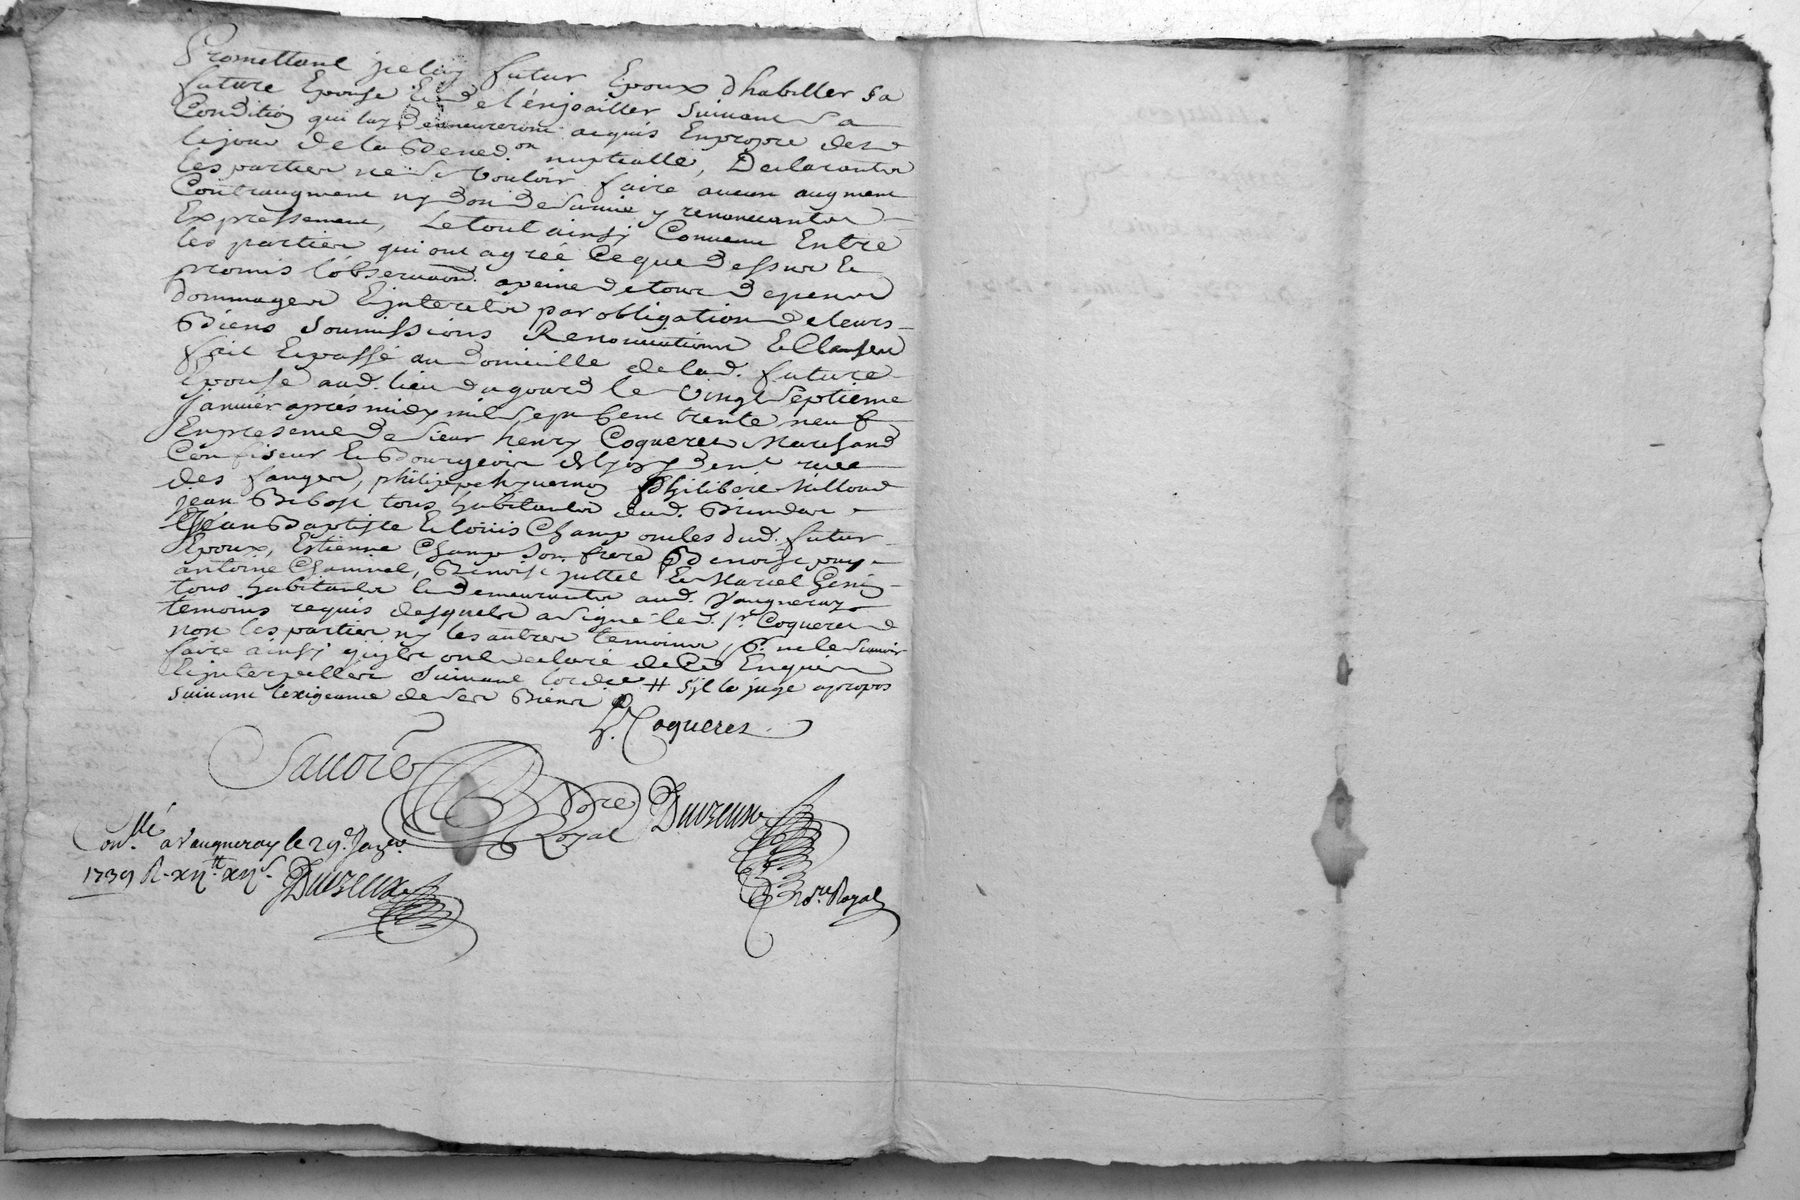 Promettant jceluy futur Epoux d'habiller sa
future Epouse Et de l'enjoailler suivant sa
Condition qui luy demeureront acquis Enpropre des
lejour de la Bened.on nuptialle, Declarants
les parties ne se vouloir faire aucun augment
Contraugment ny don de survie y renonceants
Expressement, Le tout ainsy Convenu Entre
les parties qui ont agréé Ceque dessus Et
promis l'observaon. apeine de tous depens
dommages Et jnterets par obligation de leurs
Biens soumissions Renonciations Et Clauses
fait Et passé au domicille de lad. future
Epouse aud. lieu du gourd le vingt septieme
janvier après midy mil sept Cent trente neuf
En presence de sieur henry Coqueret Marchand
Confiseur Et Bourgeois de lyon y dem.t rue
des fanges, philippe hyvernoy philibert
jean tous habitants dud. Brindas
Jean Baptiste Et loüis Champ oncles dud. futur
Epoux, Estienne Champ son frere Benoist
antoine Chamnel, Benoist juttet Et Marcel
tous habitants Et demeurants aud. Vaugneray
temoins requis desquels a signé led. s.r Coqueret Et
non les parties ny les autres temoins, p.r ne le sçavoir
faire ainsy qu'ils ont declaré de Ce Enquis
Et jnterpellés suivant lordce # s'jl le juge apropos
suivant lexigeance de ses Biens
h. Coqueret
Nore Royal
Duvzeux
Conllé. a Vaugneray le 29.e Janer.
1739 R. xii.tt xii.s Duvzeux
No.re Royal